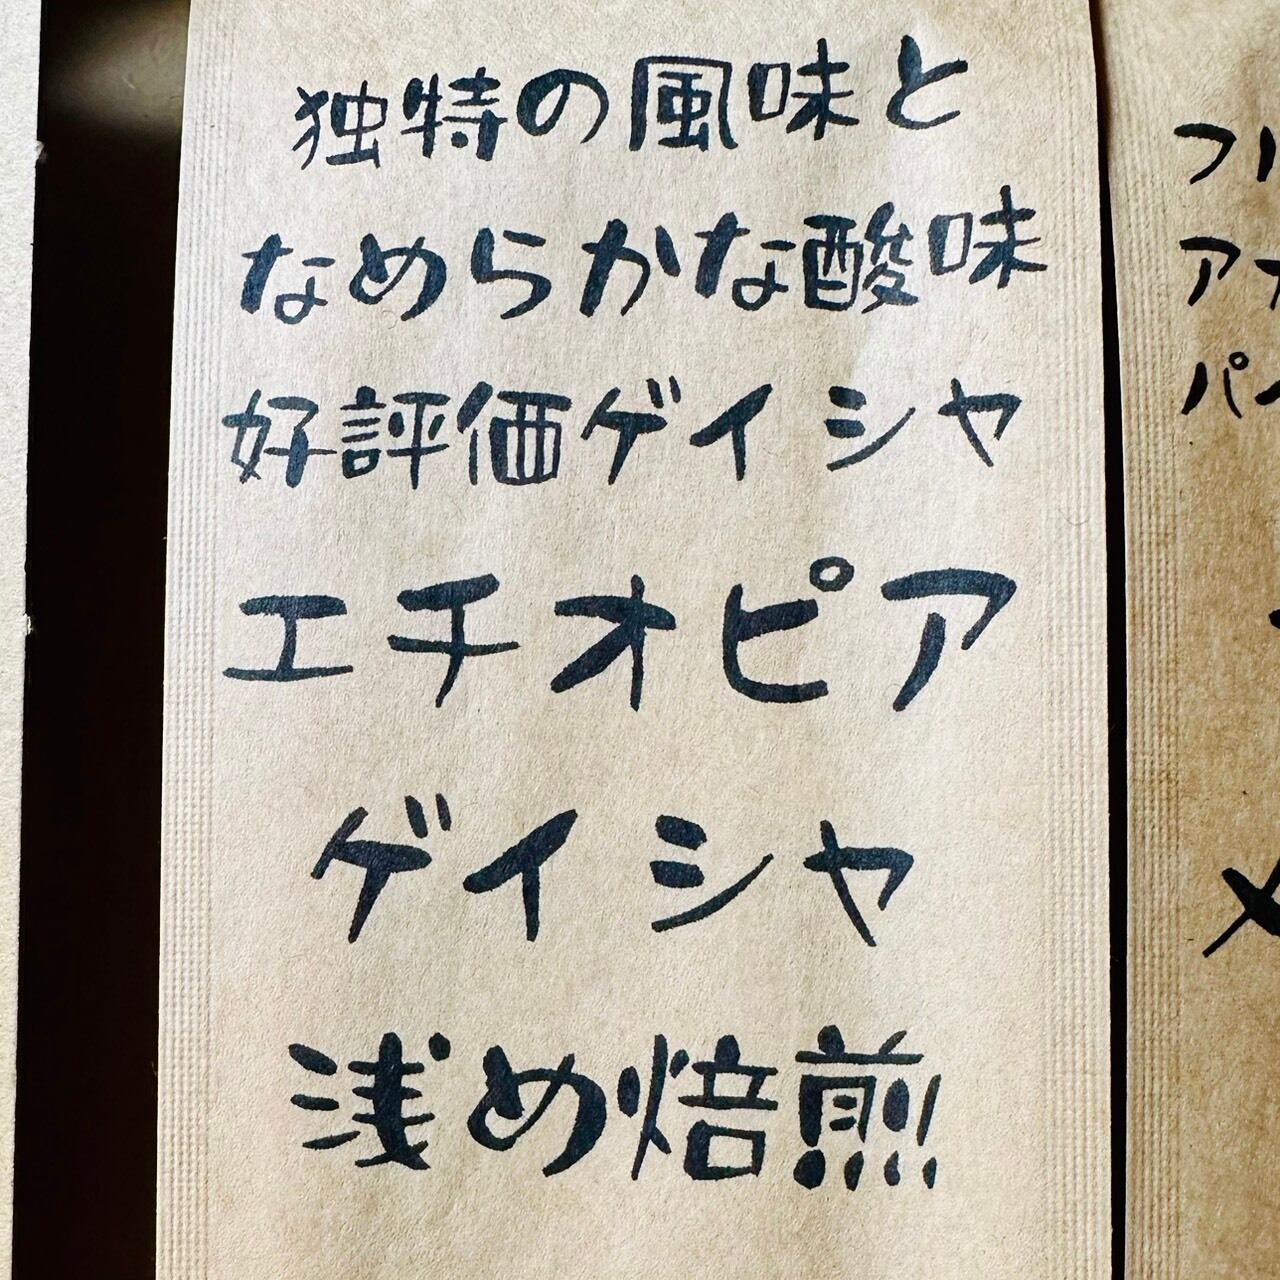 独特の風味と
なめらかな酸味
好評価ゲイシャ
エチオピア
ゲイシャ
浅め焙煎